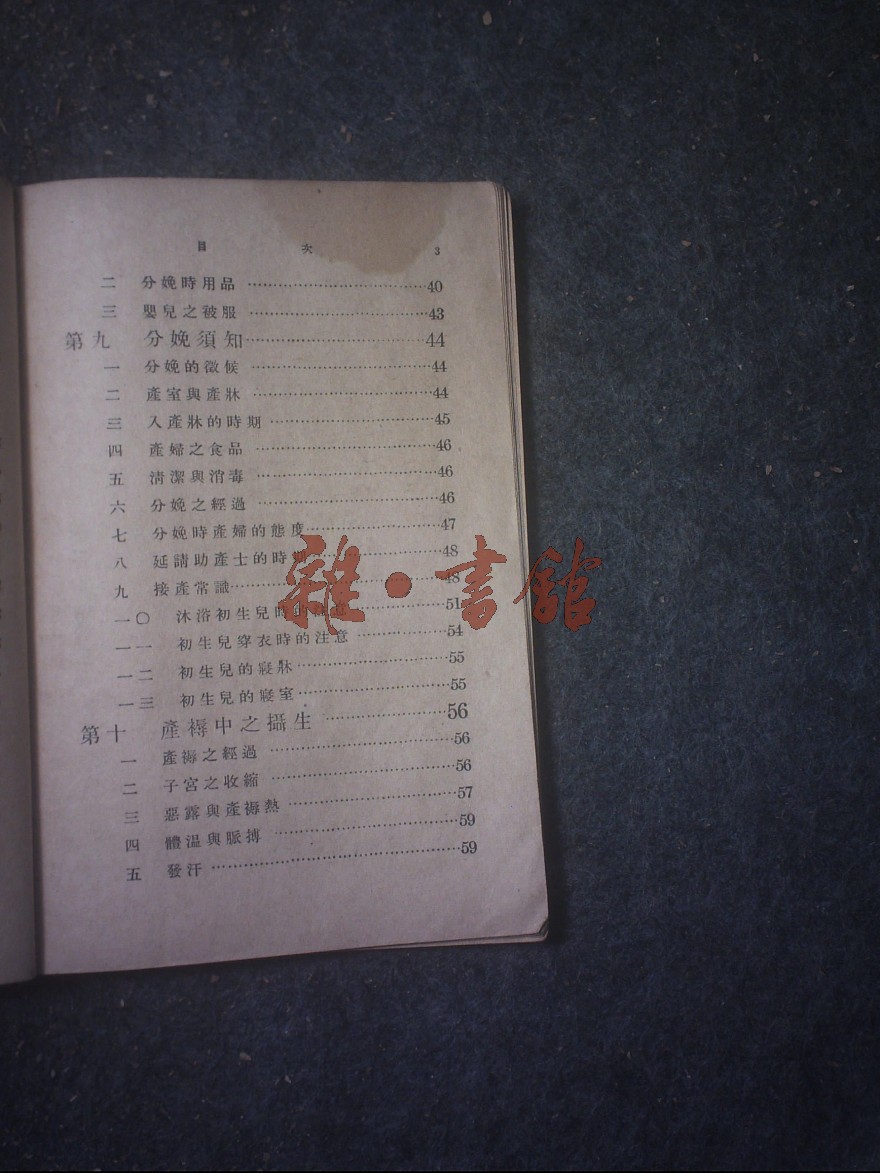 目次 3
二 分娩時用品 40
三 嬰兒之被服 43
第九 分娩須知 44
一 分娩的徵候 44
二 產室與產牀 44
三 入產牀的時期 45
四 產婦之食品 46
五 清潔與消毒 46
六 分娩之經過 46
七 分娩時產婦的態度 47
八 延請助產士的時期 48
九 接產常識 48
一〇 沐浴初生兒時的注意 51
一一 初生兒穿衣時的注意 54
一二 初生兒的寢牀 55
一三 初生兒的寢室 55
第十 產褥中之攝生 56
一 產褥之經過 56
二 子宮之收縮 56
三 惡露與產褥熱 57
四 體溫與脈搏 59
五 發汗 59
雜·書館